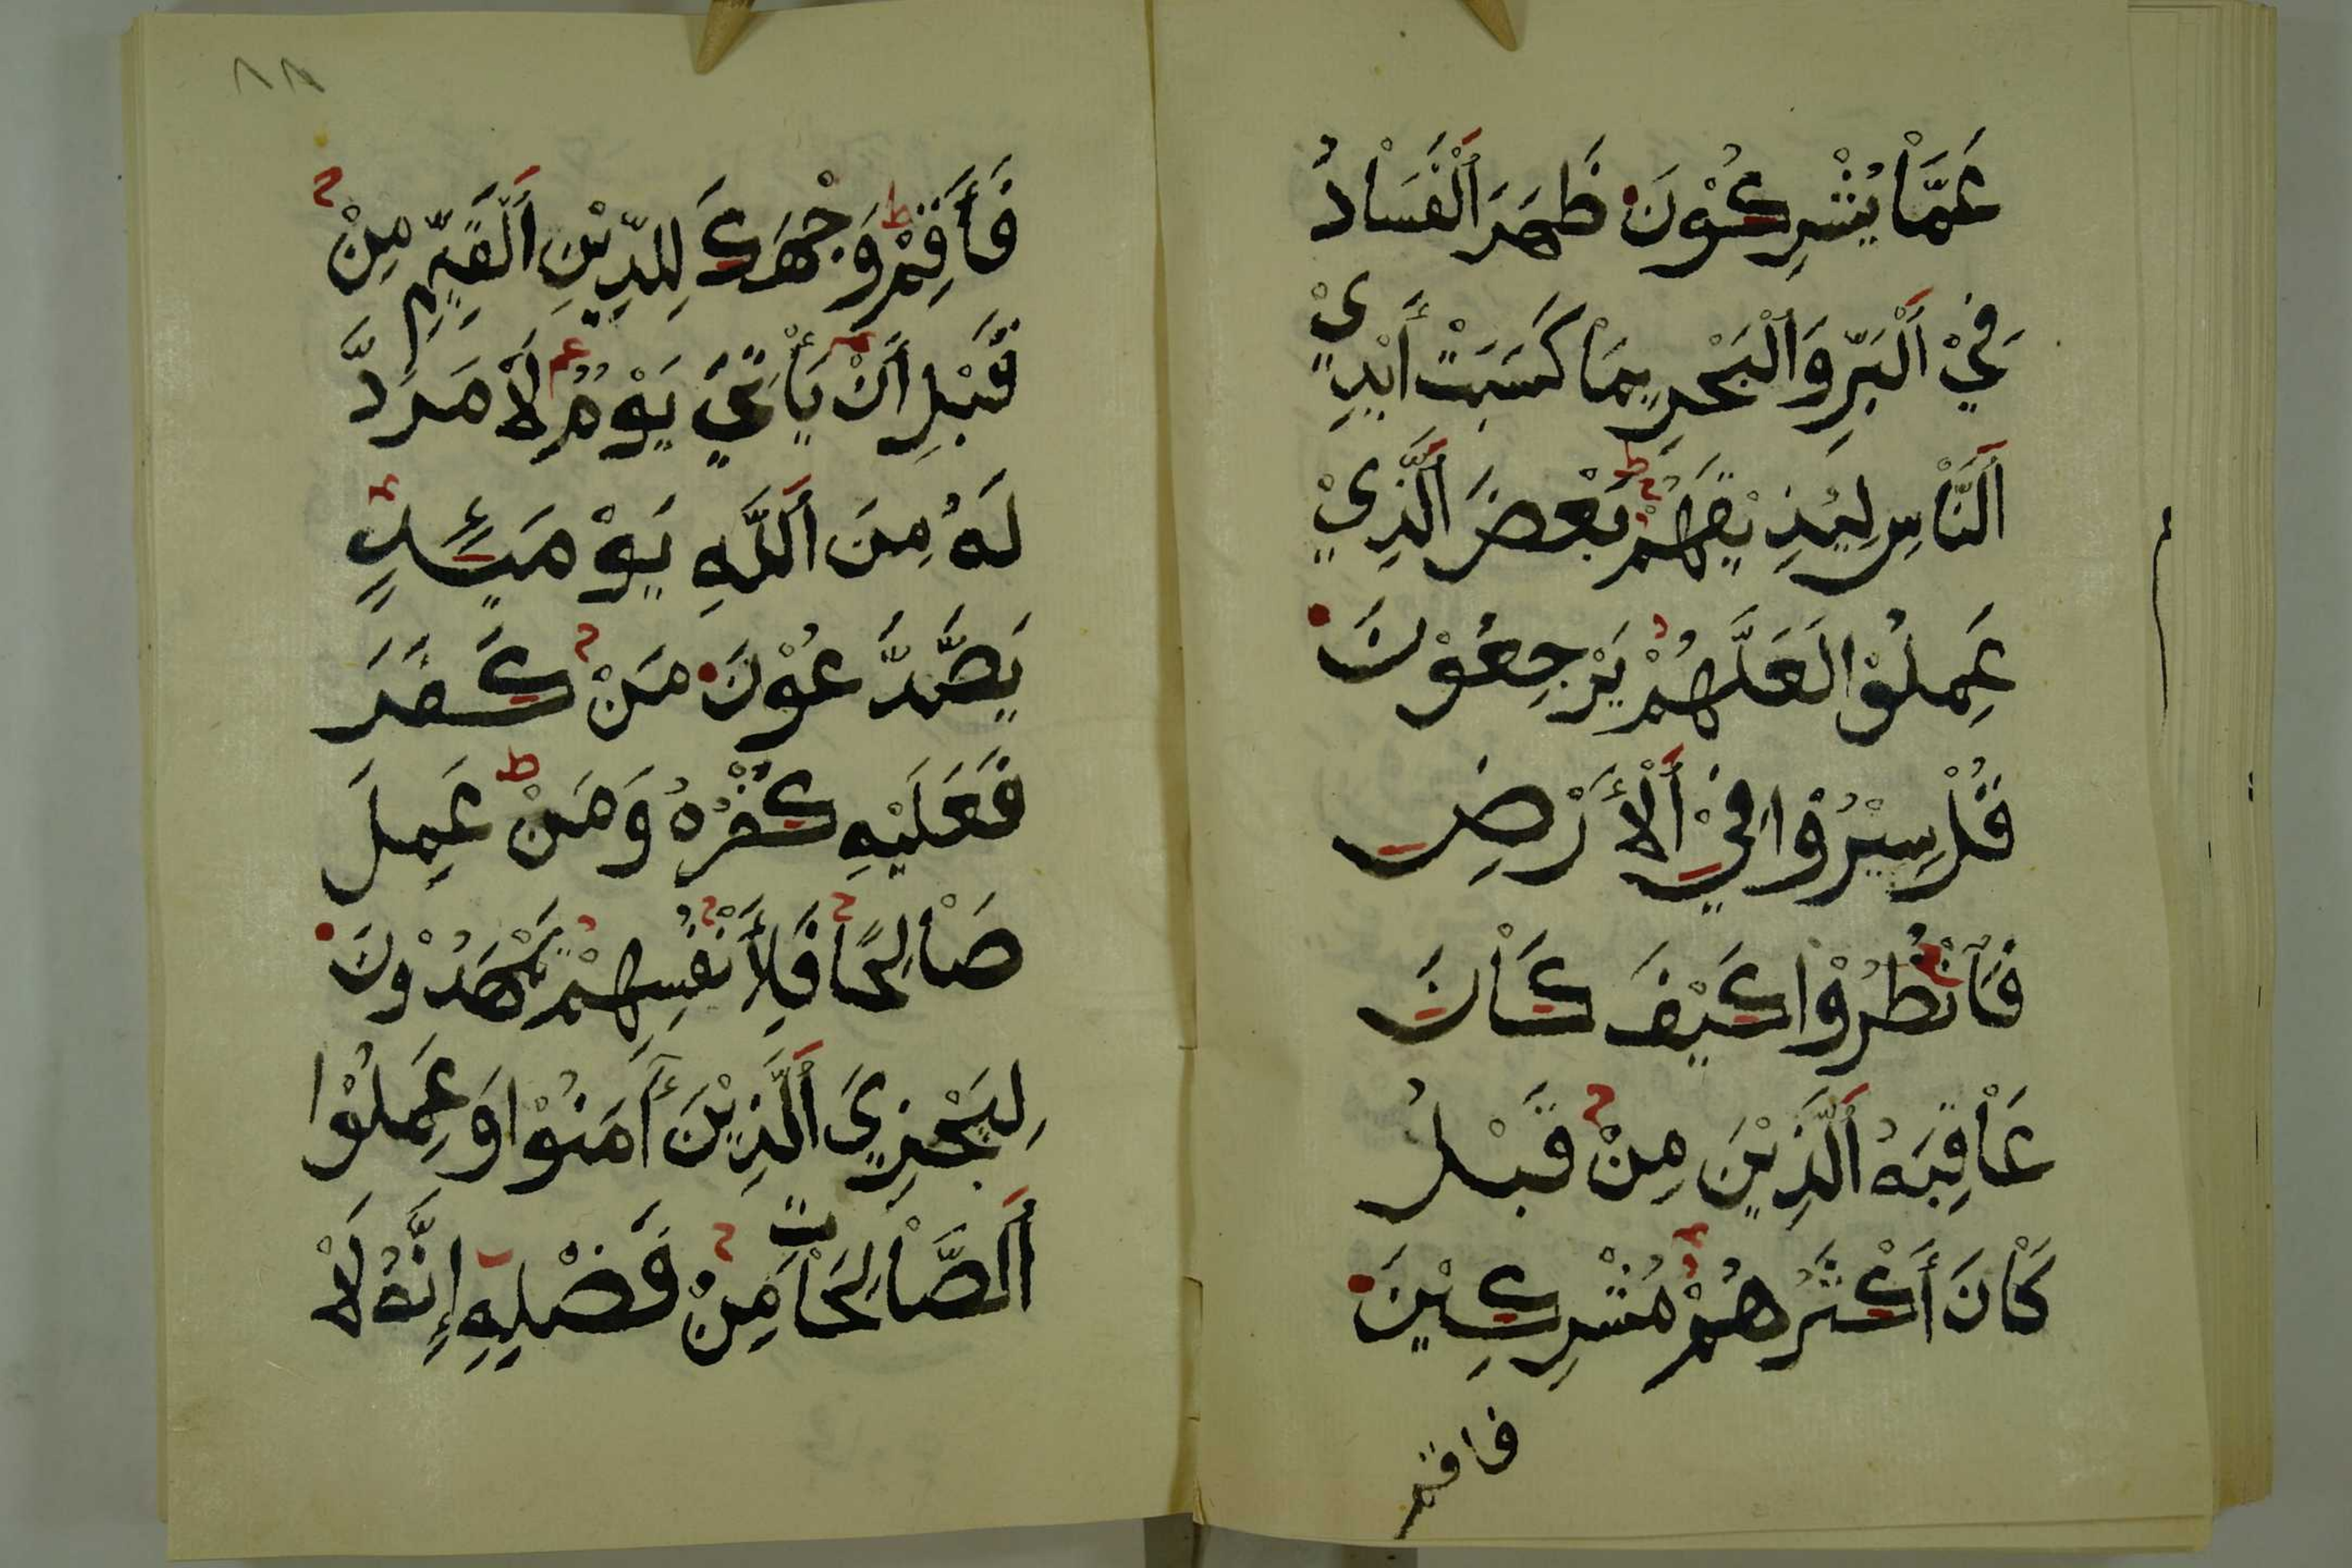 عَمَّاْ يُشْرِكُوْنَ ظَهَرَ اَلْفَسَاْدُ
فِيْ اَلْبَرِّ وَاَلْبَحْرِ بِمَاْ كَسَبَتْ أَيْدِيْ
اَلنَّاْسِ لِيُذِيْقَهُمْ بَعْضَ اَلَّذِيْ
عَمِلُوْا لَعَلَّهُمْ يَرْجِعُوْنَ
قُلْ سِيْرُوْا فِيْ اَلْأَرْضِ
فَاْنْظُرُوْا كَيْفَ كَاْنَ
عَاْقِبَةُ اَلَّذِيْنَ مِنْ قَبْلُ
كَاْنَ أَكْثَرُهُمْ مُشْرِكِيْنَ
فاقم
٨٨
فَأَقِمْ وَجْهَكَ لِلدِّيْنِ اَلْقَيِّمِ مِنْ
قَبْلِ أَنْ يَأْتِيَ يَوْمٌ لَاْ مَرَدَّ
لَهُ مِنَ اَللَّهِ يَوْمَئِذٍ
يَصَّدَّعُوْنَ مَنْ كَفَرَ
فَعَلَيْهِ كُفْرُهُ وَمَنْ عَمِلَ
صَاْلِحًا فَلِأَنْفُسِهِمْ يَمْهَدُوْنَ
لِيَجْزِيَ اَلَّذِيْنَ أٓمَنُوْا وَعَمِلُوْا
اَلصَّاْلِحَاْتِ مِنْ فَضْلِهِ إِنَّهُ لَاْ